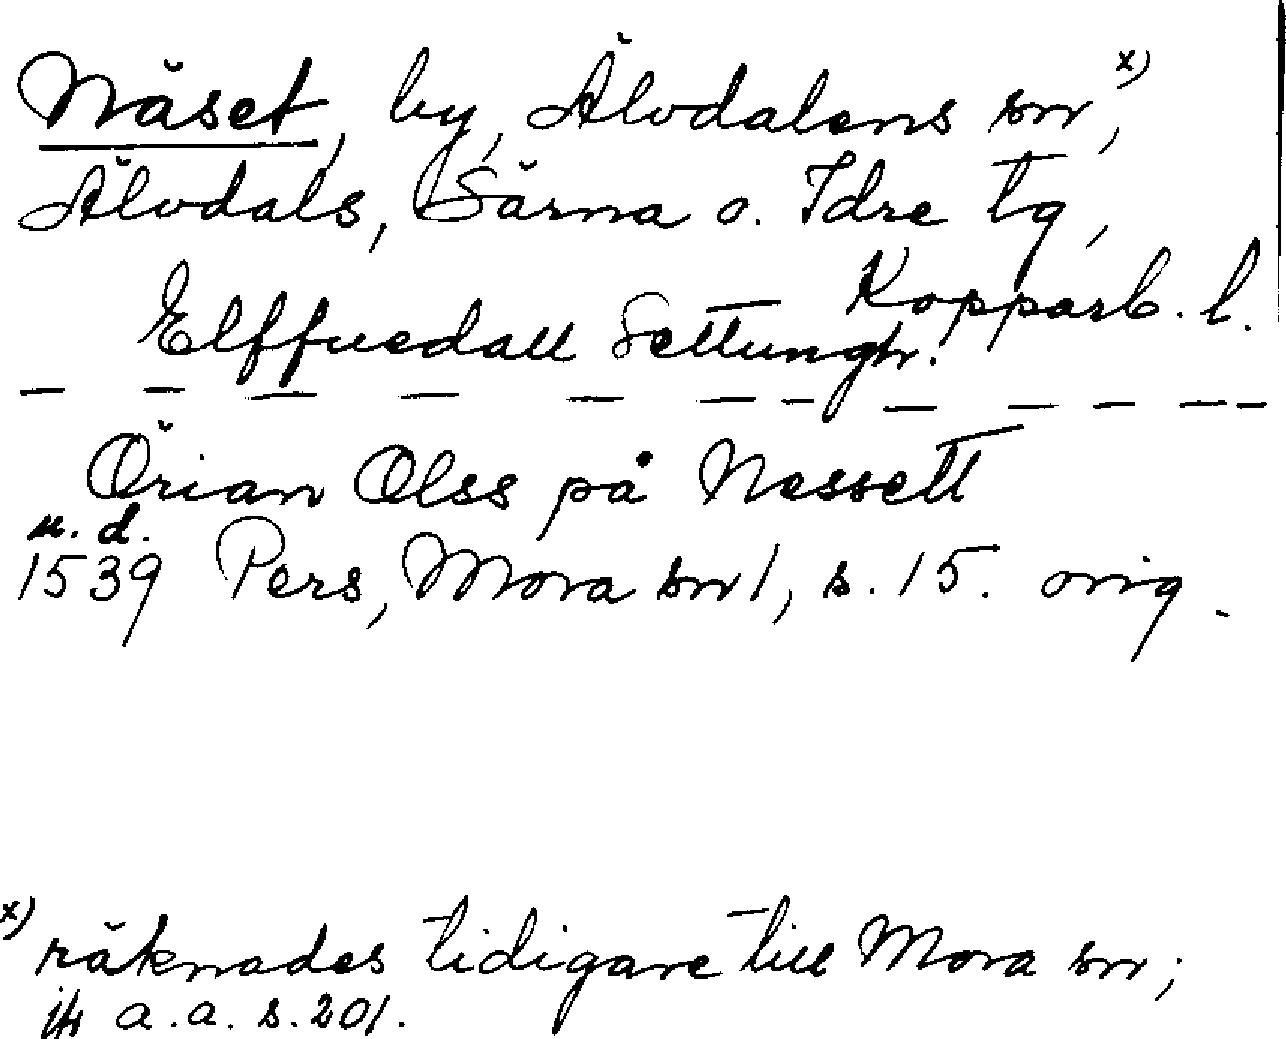 Näset, by, Älvdalens sn x),
Älvdals, Särna o. Idre tg,
Kopparb. l.
Elffuedall Settungh.
— — — — — — — — — — —
Örian Olss på Nessett
u. d.
1539 Pers, Mora sn 1, s. 15. orig.
x) räknades tidigare till Mora sn;
jfr a.a. s. 201.